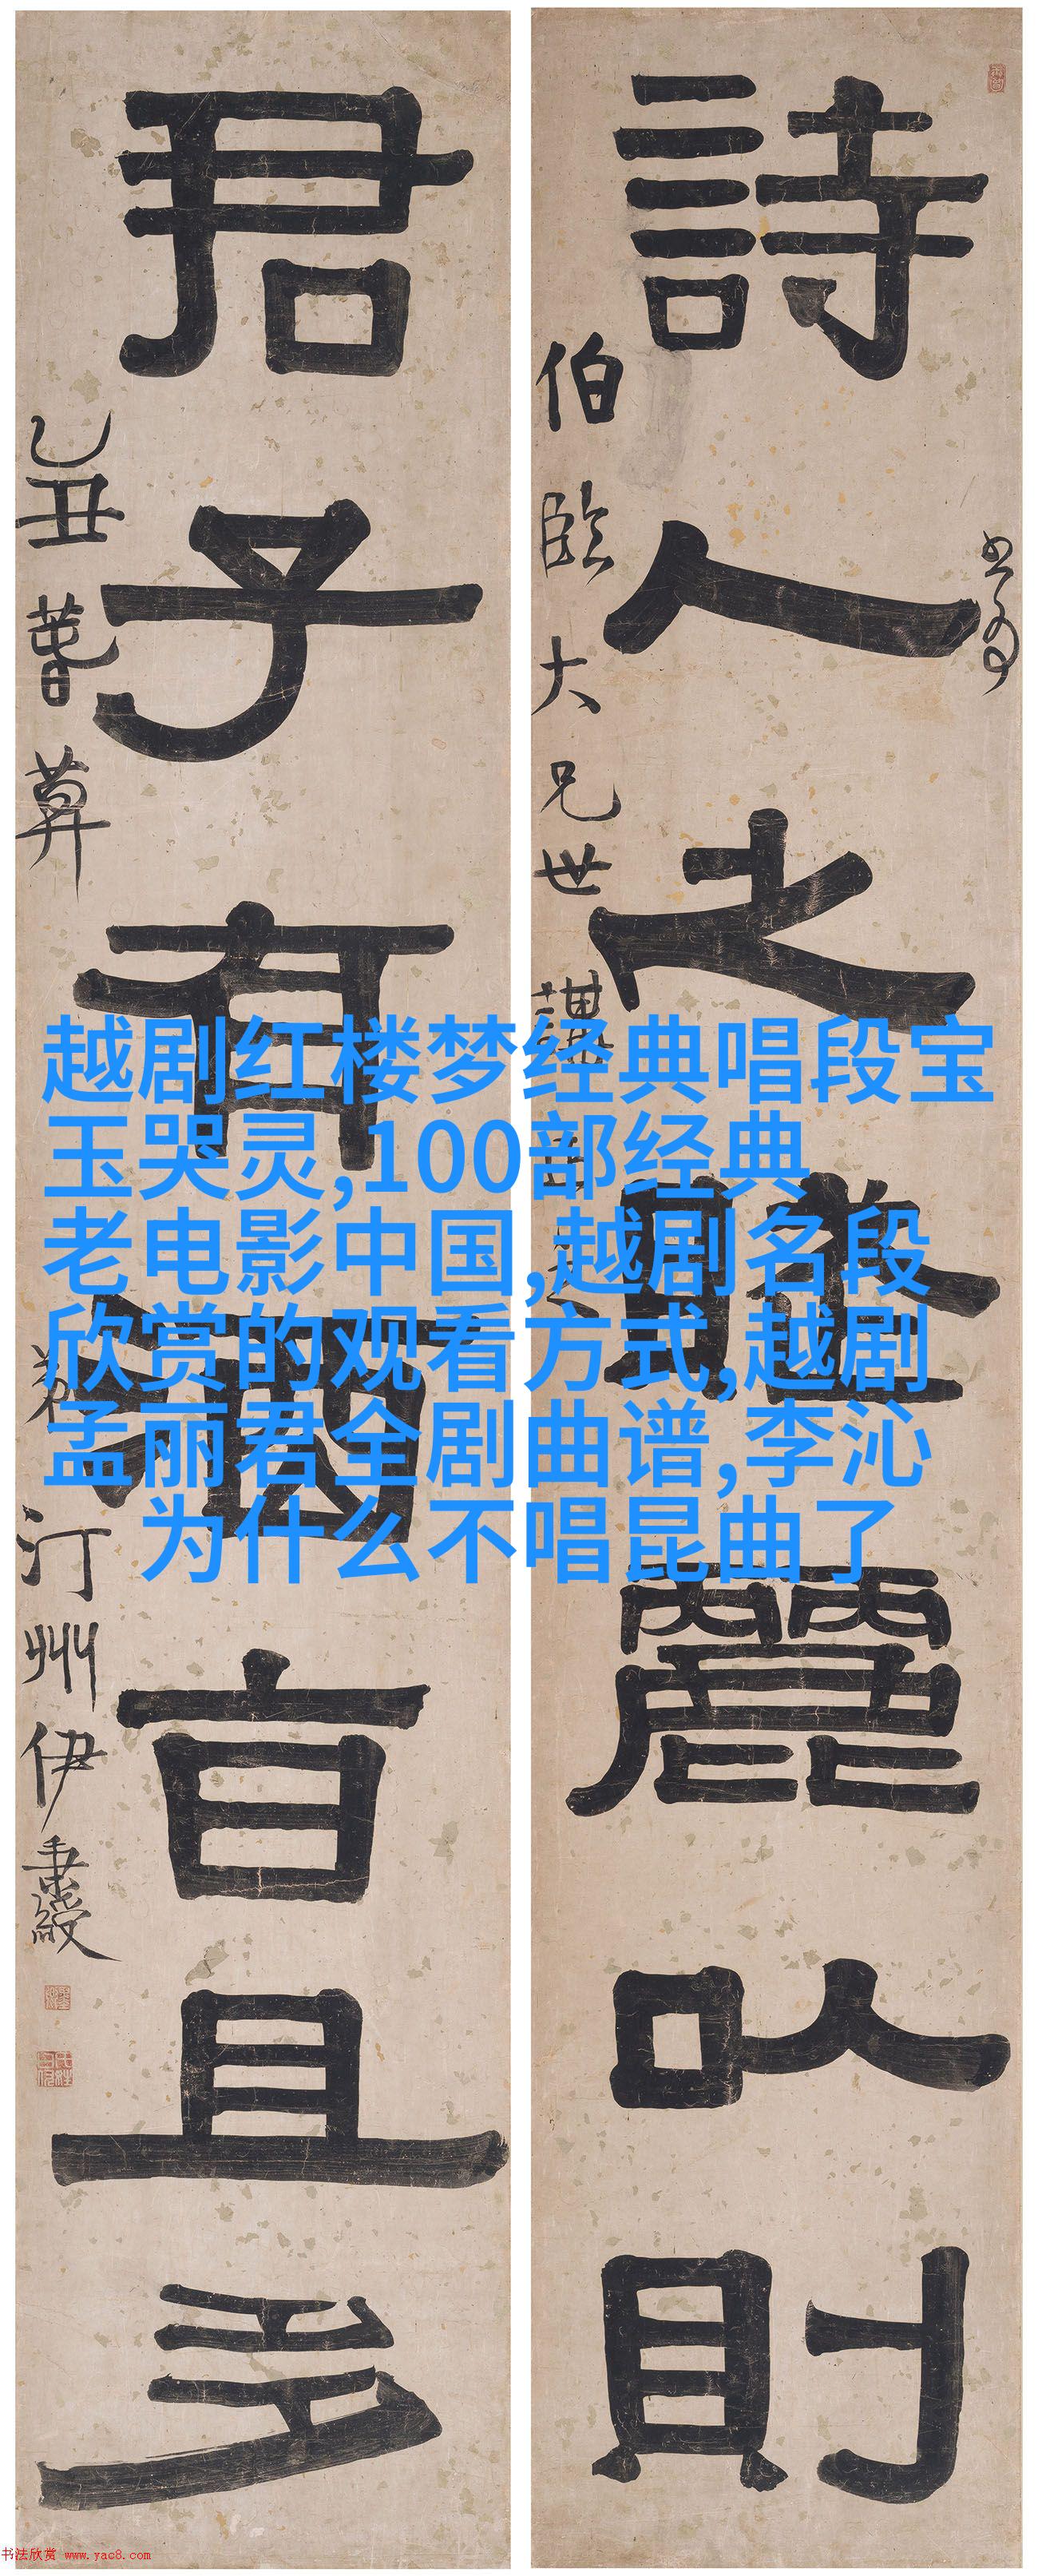 越剧红楼梦经典唱段宝
玉哭灵,100部经典
老电影中国,越剧名段
欣赏的观看方式,越剧
孟丽君全剧曲谱,李沁
为什么不唱昆曲了
詩人之賦麗以則
伯臨大兄世講
君子有酒旨且多
乙丑
汀州伊秉綬
书法欣赏 www.yac8.com